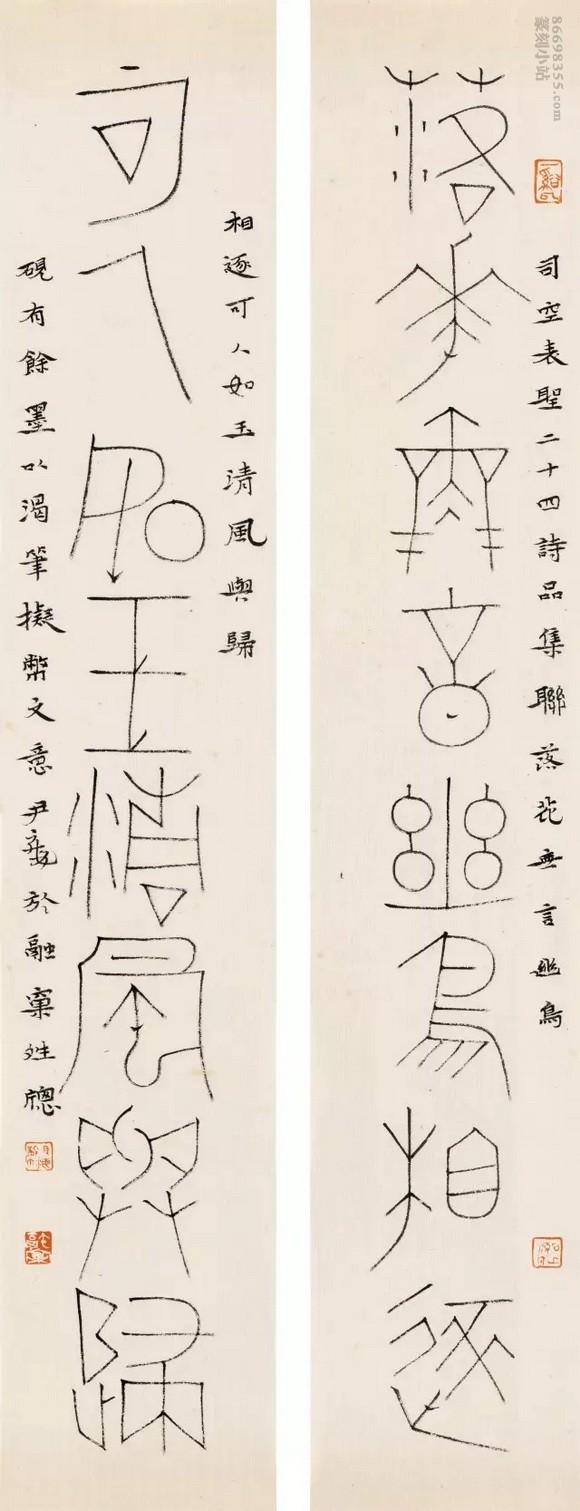 86698355.com
篆刻小站
司空表聖二十四詩品集聯落花無言幽鳥
落花無言幽鳥相逐
相逐可人如玉清風與歸
可人如玉清風與歸
硯有餘墨以渴筆擬幣文意尹海龍於融窠炷窗